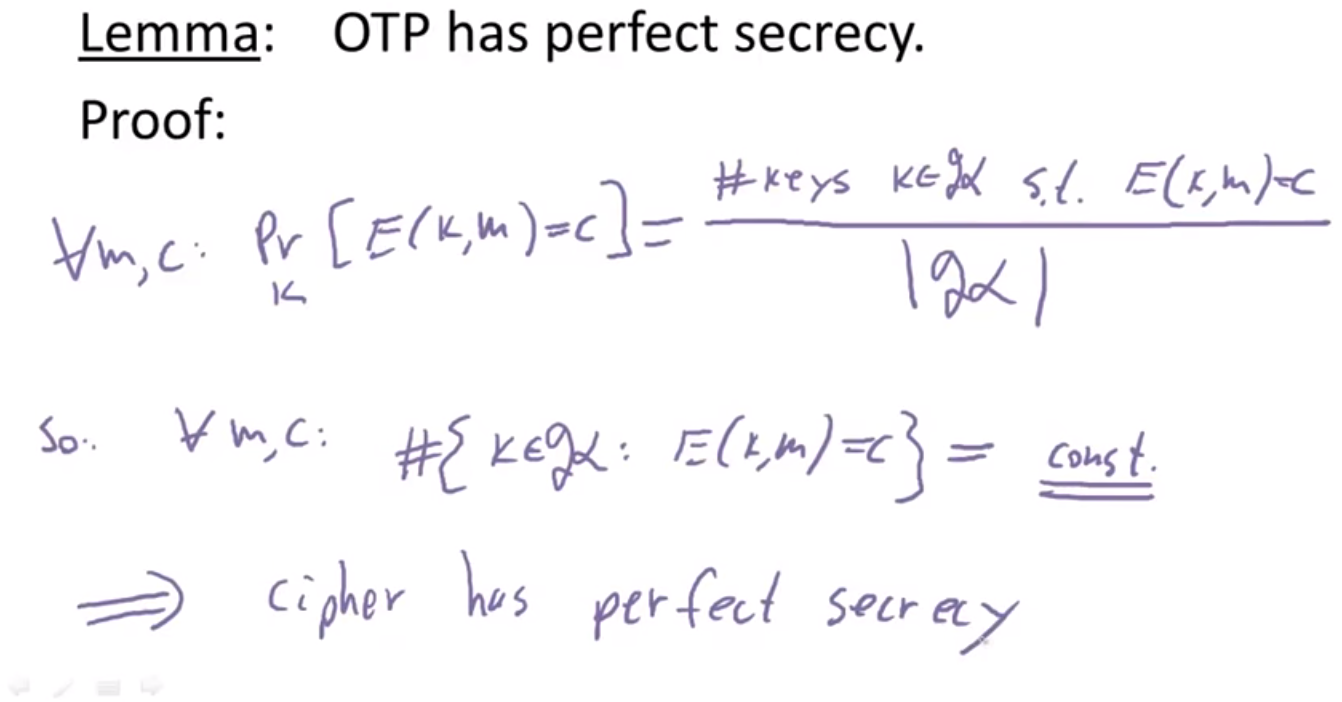 Lemma: OTP has perfect secrecy.
Proof:
∀m,c: Pr_K [E(k,m)=c] = (#keys k∈𝒦 s.t. E(k,m)=c) / |𝒦|
So: ∀m,c: #{k∈𝒦: E(k,m)=c} = const.
⟹ cipher has perfect secrecy